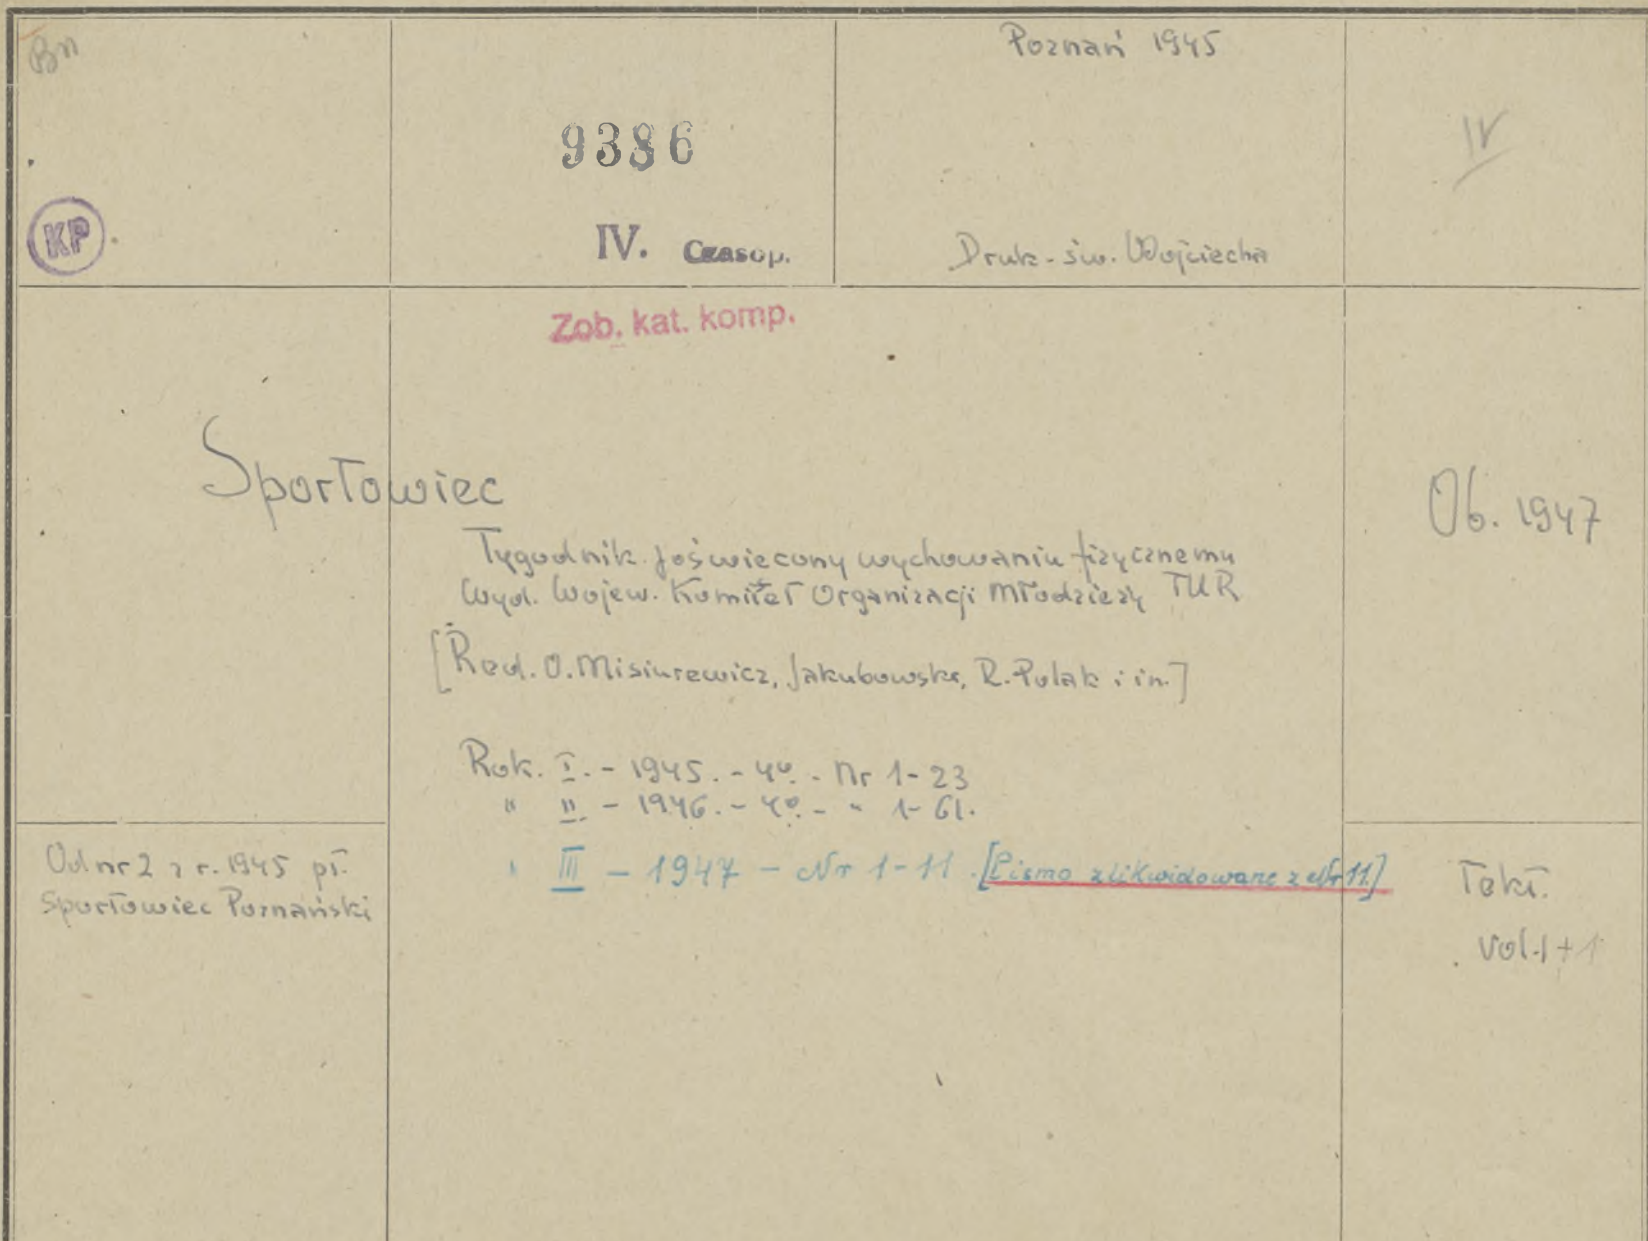 Bn
Poznań 1945
9386
IV
KP
IV. Czasop.
Druk. św. Wojciecha
Zob. kat. komp.
Sportowiec
Ob. 1947
Tygodnik poświęcony wychowaniu fizycznemu
Wyd. Wojew. Komitet Organizacji Młodzieży TUR
[Red. O. Misiurewicz, Jakubowski, R. Polak i in.]
Rok. I. - 1945. - 4º. - Nr 1-23
" II. - 1946. - 4º. - " 1-61.
" III - 1947 - Nr 1-11. [Pismo zlikwidowane z Nr 11.]
Od nr 2 z r. 1945 pt.
Sportowiec Poznański
Tekt.
vol. 1 + 1